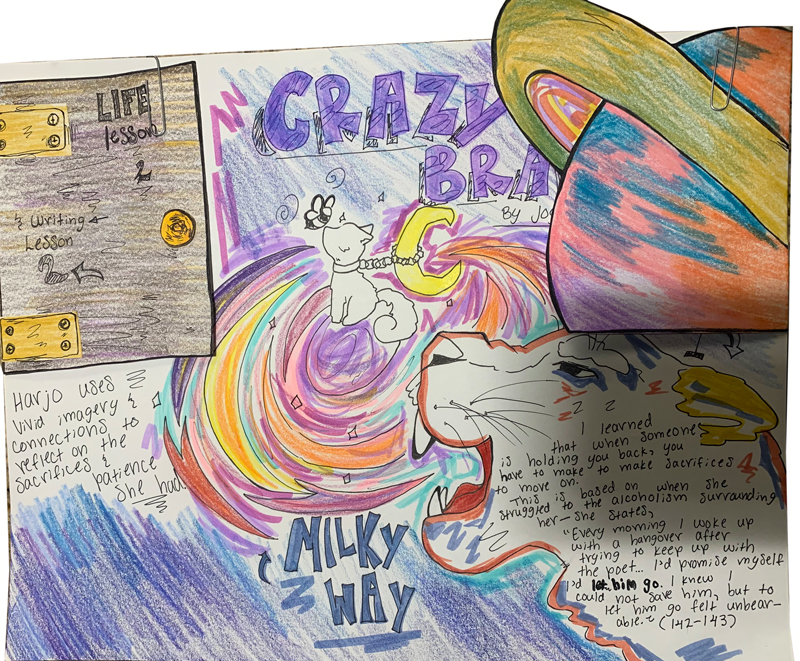 LIFE
lesson
&
& Writing
Lesson
CRAZY
BRA
By Jo
Harjo uses
vivid imagery &
connections to
reflect on the
sacrifices &
patience
she had.
MILKY
WAY
I learned
that when someone
is holding you back, you
have to make to make sacrifices
to move on.
This is based on when she
struggled to the alcoholism surrounding
her—she states,
"Every morning I woke up
with a hangover after
trying to keep up with
the poet... I'd promise myself
I'd let him go. I knew I
could not save him, but to
let him go felt unbear-
able." (142-143)